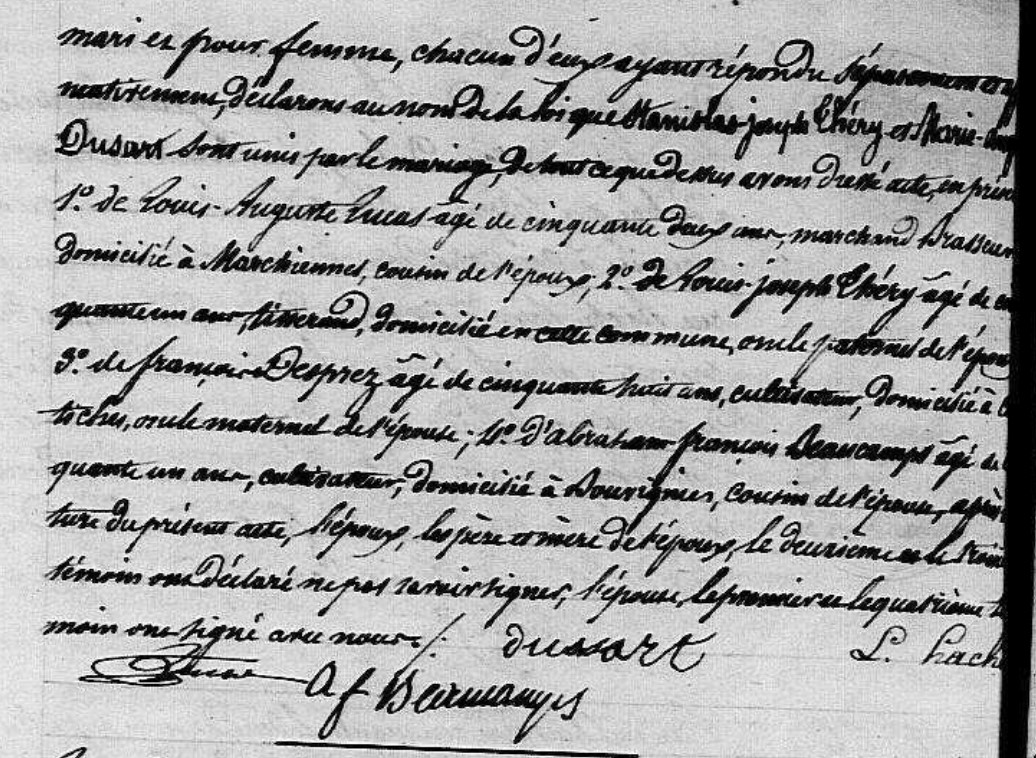 mari et pour femme, chacun d'eux ayant répondu séparément et
mativement, déclarons au nom de la loi que Stanislas-joseph Théry et Marie-
Dusart sont unis par le mariage, de tout ce que dessus avons dressé acte, en prés
1º. de Louis-Auguste Lucas âgé de cinquante deux ans, marchand brasseur
domicilié à Marchiennes, cousin de l'époux; 2º. de Louis-joseph Théry âgé de
quante un ans, tisserand, domicilié en cette commune, oncle paternel de l'épou
3º. de françois Desprez âgé de cinquante huit ans, cultivateur, domicilié à
tiches, oncle maternel de l'épouse; 4º. d'abraham françois Beaucamps âgé de
quante un ans, cultivateur, domicilié à Bouvignies, cousin de l'épouse, après
ture du présent acte, l'époux, les père et mère de l'époux, le deuxième et le trois
témoin ont déclaré ne pas savoir signer, l'épouse, le premier et le quatrième té
moin ont signé avec nous./.
dussart L. Lach
a f